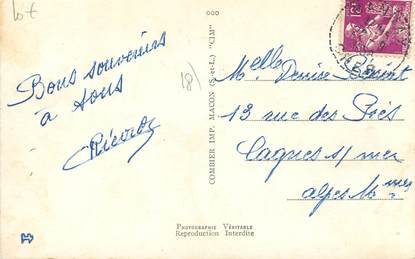 lot
Bons souvenirs
à tous
18)
COMBIER IMP. MACON (S.-et-L.) "CIM"
Melle Denise
13 rue des Prés
Cagnes s/ mer
Alpes Mmes
PHOTOGRAPHIE VÉRITABLE
Reproduction Interdite